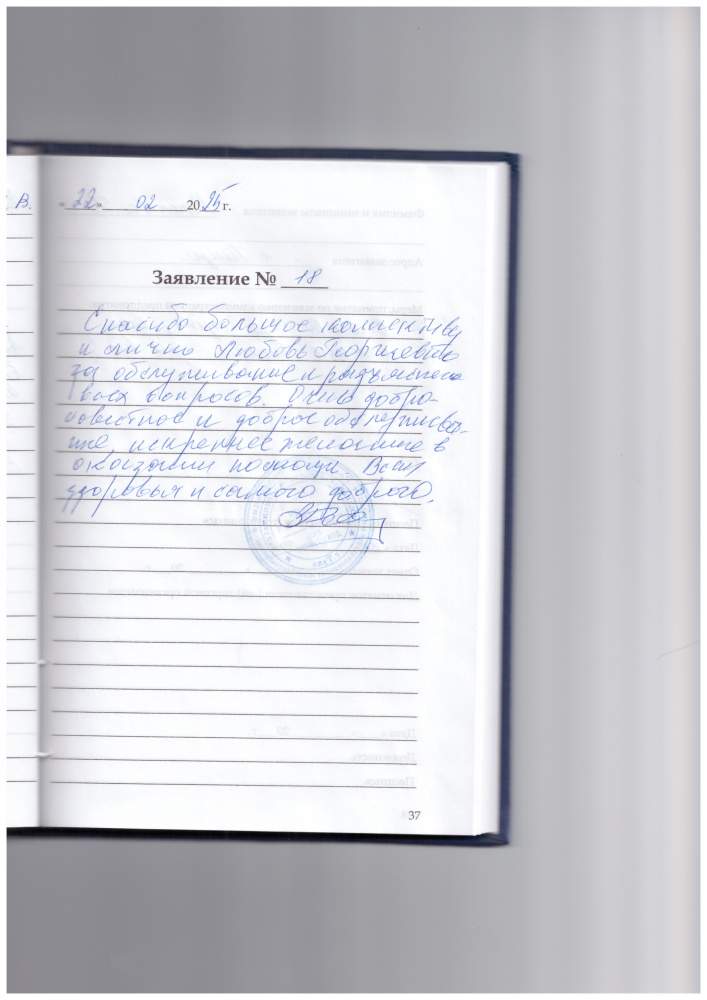 В.
«22» 02 2025 г.
Заявление № 18
Спасибо большое коллективу
и лично Любовь Георгиевне
за обслуживание и разъяснение
всех вопросов. Очень добро-
совестное и доброе обслужива-
ние, искреннее желание в
оказании помощи. Всем
здоровья и самого доброго.
37